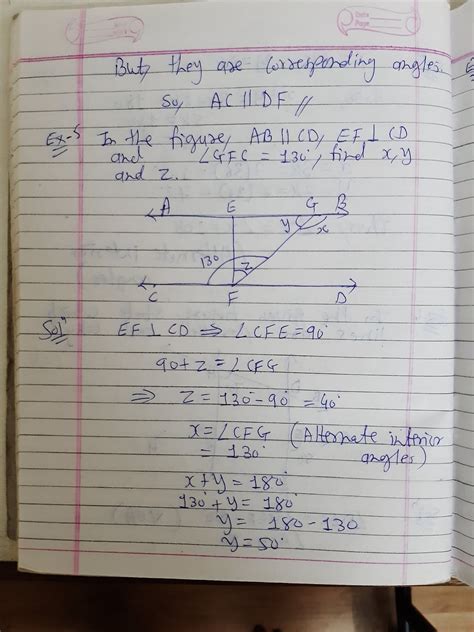 But, they are corresponding angles.
So, AC || DF //
Ex-5 In the figure, AB || CD, EF ⊥ CD
and ∠GFC = 130°, find x, y
and z.
A E G B
y x
130 z
C F D
Solⁿ EF ⊥ CD ⇒ ∠CFE = 90°
90 + z = ∠CFG
⇒ z = 130° - 90° = 40°
x = ∠CFG (Alternate interior
= 130° angles)
x + y = 180°
130° + y = 180°
y = 180 - 130
y = 50°